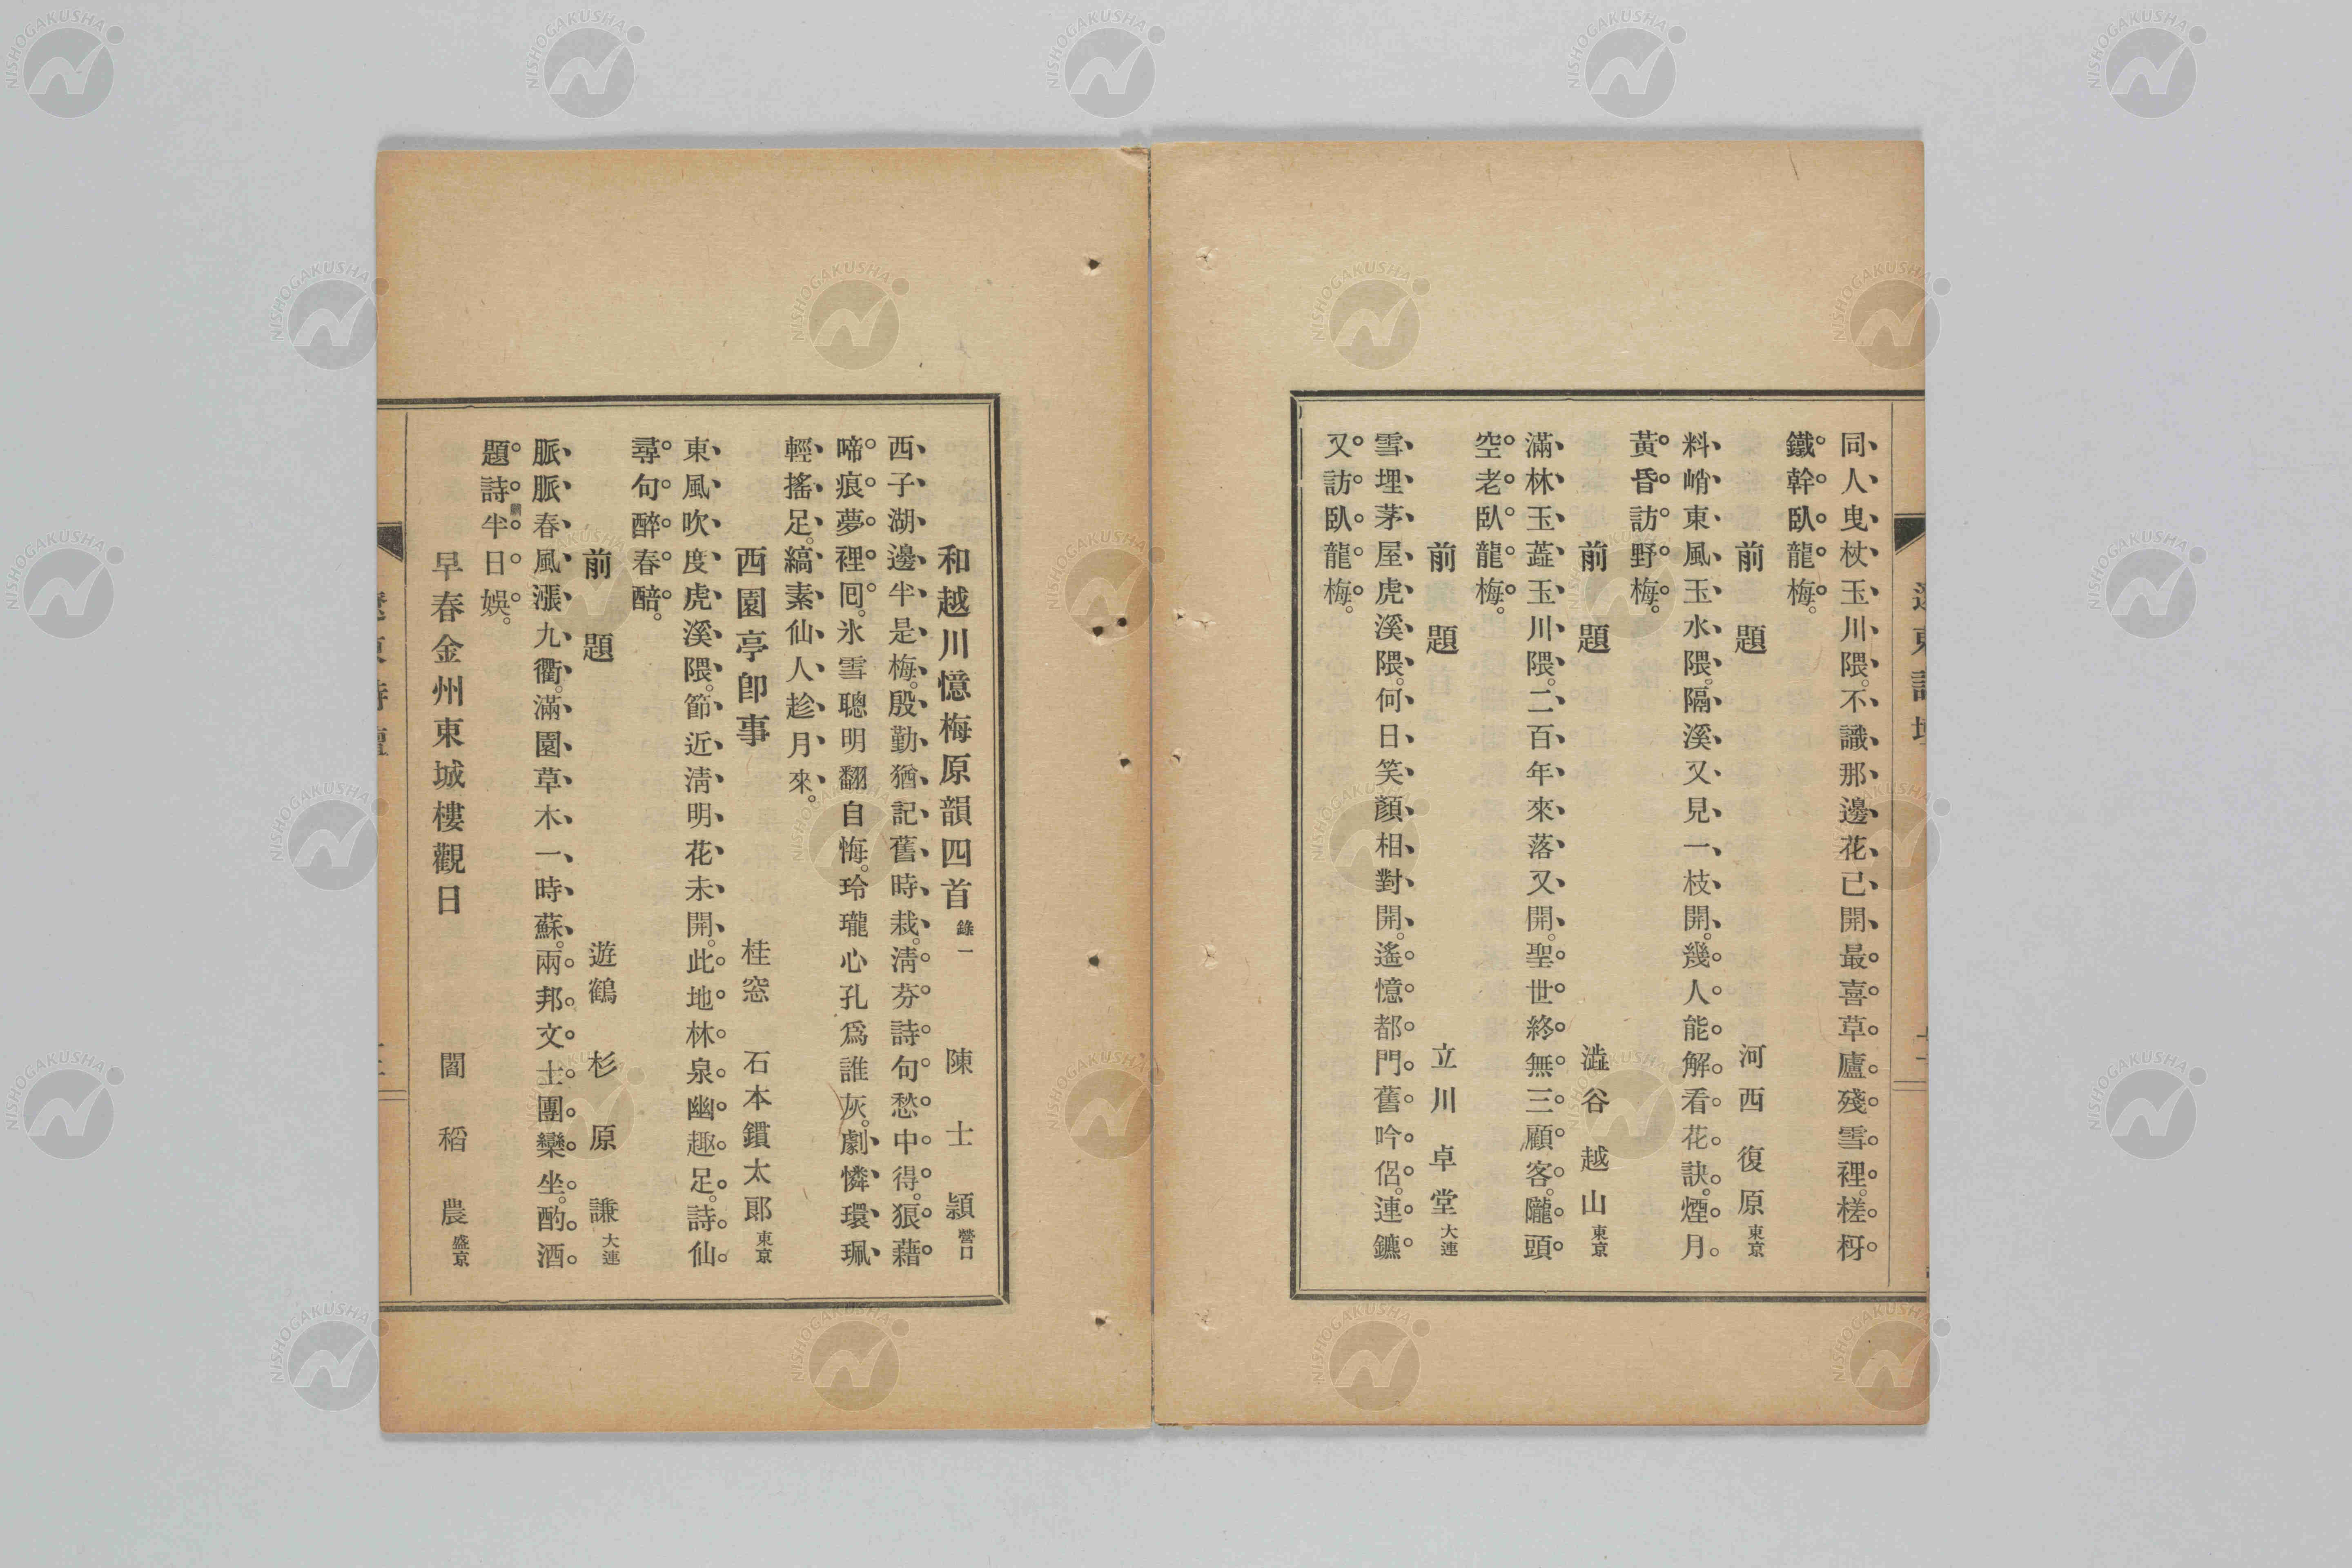 同人曳杖玉川隈。不識那邊花已開。最喜草廬殘雪裡。槎枒
鐵幹臥龍梅。
前題 河西復原 東京
料峭東風玉水隈。隔溪又見一枝開。幾人能解看花訣。煙月
黃昏訪野梅。
前題 澁谷越山 東京
滿林玉蕋玉川隈。二百年來落又開。聖世終無三顧客。隴頭
空老臥龍梅。
前題 立川卓堂 大連
雪埋茅屋虎溪隈。何日笑顏相對開。遙憶都門舊吟侶。連鑣
又訪臥龍梅。
和越川憶梅原韻四首 錄一 陳士頴 營口
西子湖邊半是梅。殷勤猶記舊時栽。淸芬詩句愁中得。狼藉
啼痕夢裡囘。氷雪聰明翻自悔。玲瓏心孔爲誰灰。劇憐環珮
輕搖足。縞素仙人趁月來。
西園亭卽事 桂窓 石本鏆太郞 東京
東風吹度虎溪隈。節近淸明花未開。此地林泉幽趣足。詩仙
尋句醉春醅。
前題 遊鶴 杉原謙 大連
脈脈春風漲九衢。滿園草木一時蘇。兩邦文士團欒坐。酌酒
題詩半日娛。
早春金州東城樓觀日 閻稻農 盛京
NISHOGAKUSHA